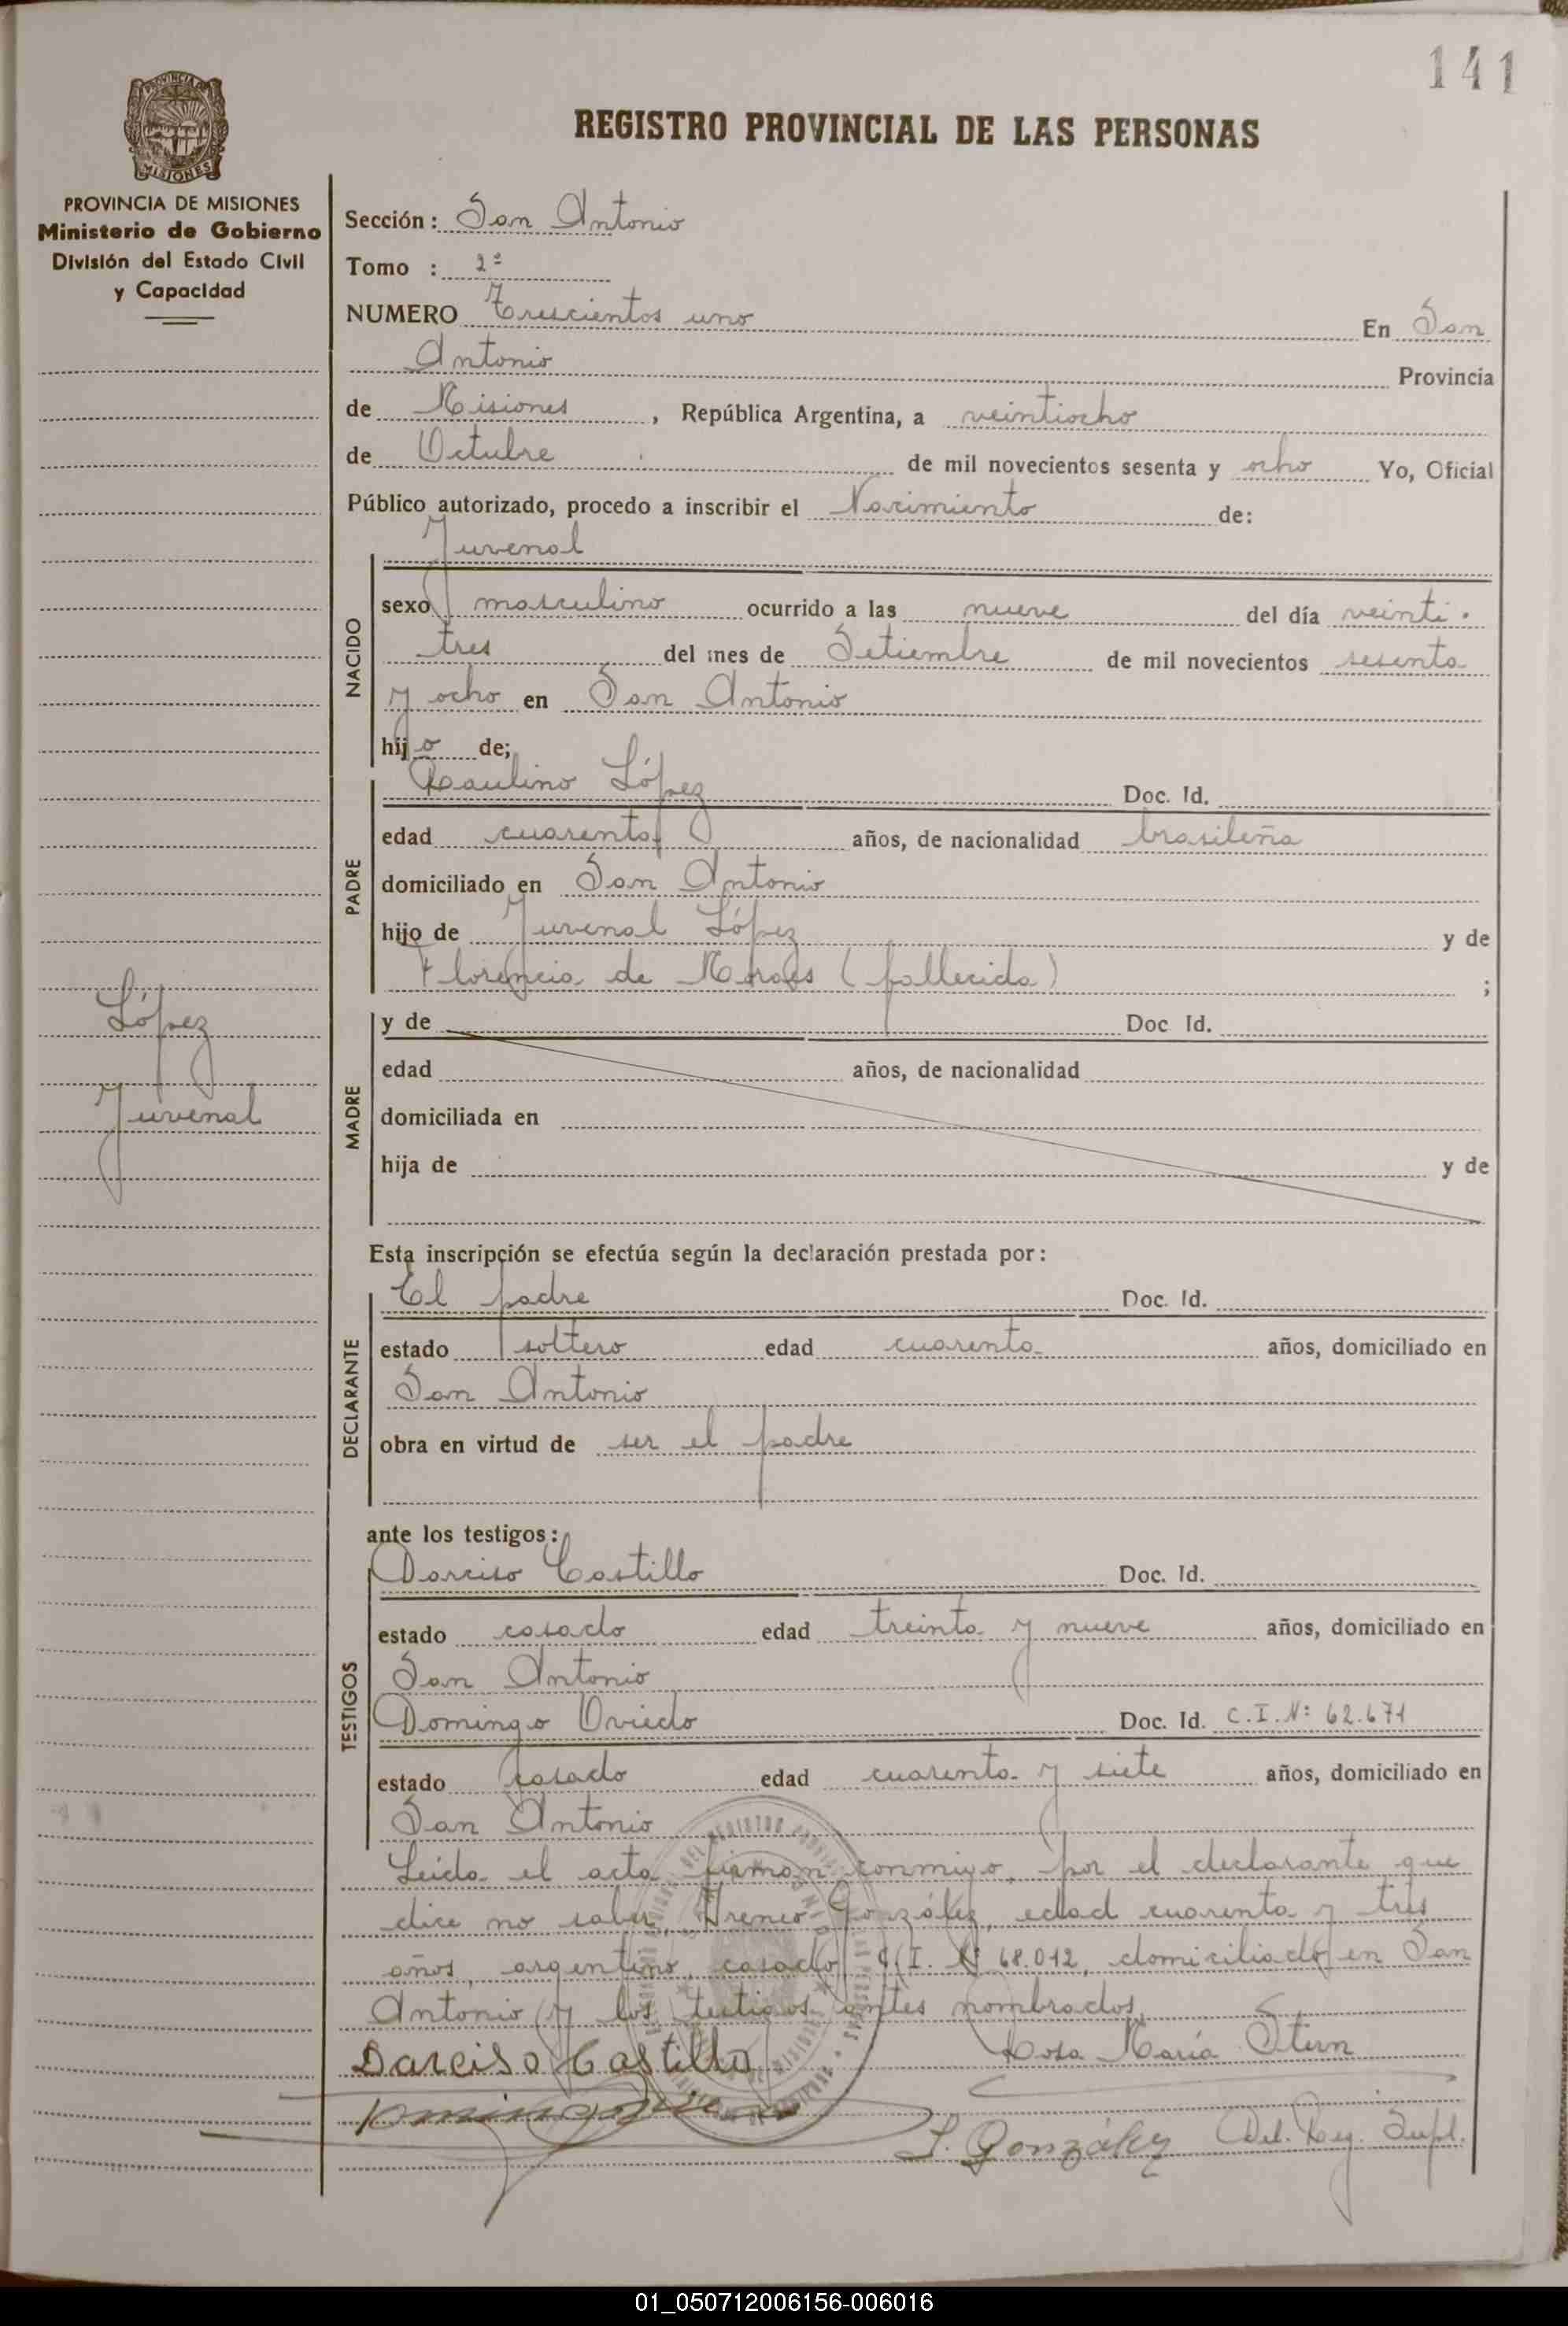 141
PROVINCIA DE MISIONES
Ministerio de Gobierno
División del Estado Civil
y Capacidad
REGISTRO PROVINCIAL DE LAS PERSONAS
Sección: San Antonio
Tomo : 2º
NUMERO Trescientos uno En San
Antonio Provincia
de Misiones, República Argentina, a veintiocho
de Octubre de mil novecientos sesenta y ocho Yo, Oficial
Público autorizado, procedo a inscribir el Nacimiento de:
NACIDO
Juvenal
sexo masculino ocurrido a las nueve del día veinti-
tres del mes de Setiembre de mil novecientos sesenta
y ocho en San Antonio
hijo de;
PADRE
Paulino López Doc. Id.
edad cuarenta años, de nacionalidad brasileña
domiciliado en San Antonio
hijo de Juvenal López y de
Florencia de Moraes (fallecida) ;
López
Juvenal
MADRE
y de Doc Id.
edad años, de nacionalidad
domiciliada en
hija de y de
Esta inscripción se efectúa según la declaración prestada por:
DECLARANTE
El padre Doc. Id.
estado soltero edad cuarenta años, domiciliado en
San Antonio
obra en virtud de ser el padre
ante los testigos:
TESTIGOS
Darciso Castillo Doc. Id.
estado casado edad treinta y nueve años, domiciliado en
San Antonio
Domingo Oviedo Doc. Id. C.I.Nº 62.671
estado casado edad cuarenta y siete años, domiciliado en
San Antonio
Leída el acta, firman conmigo, por el declarante que
dice no saber, Ireneo González, edad cuarenta y tres
años, argentino, casado, C.I. Nº 68.012, domiciliado en San
Antonio y los testigos antes nombrados
Darciso Castillo Rosa María Stern
I. González Del. Reg. Supl.
01_050712006156-006016